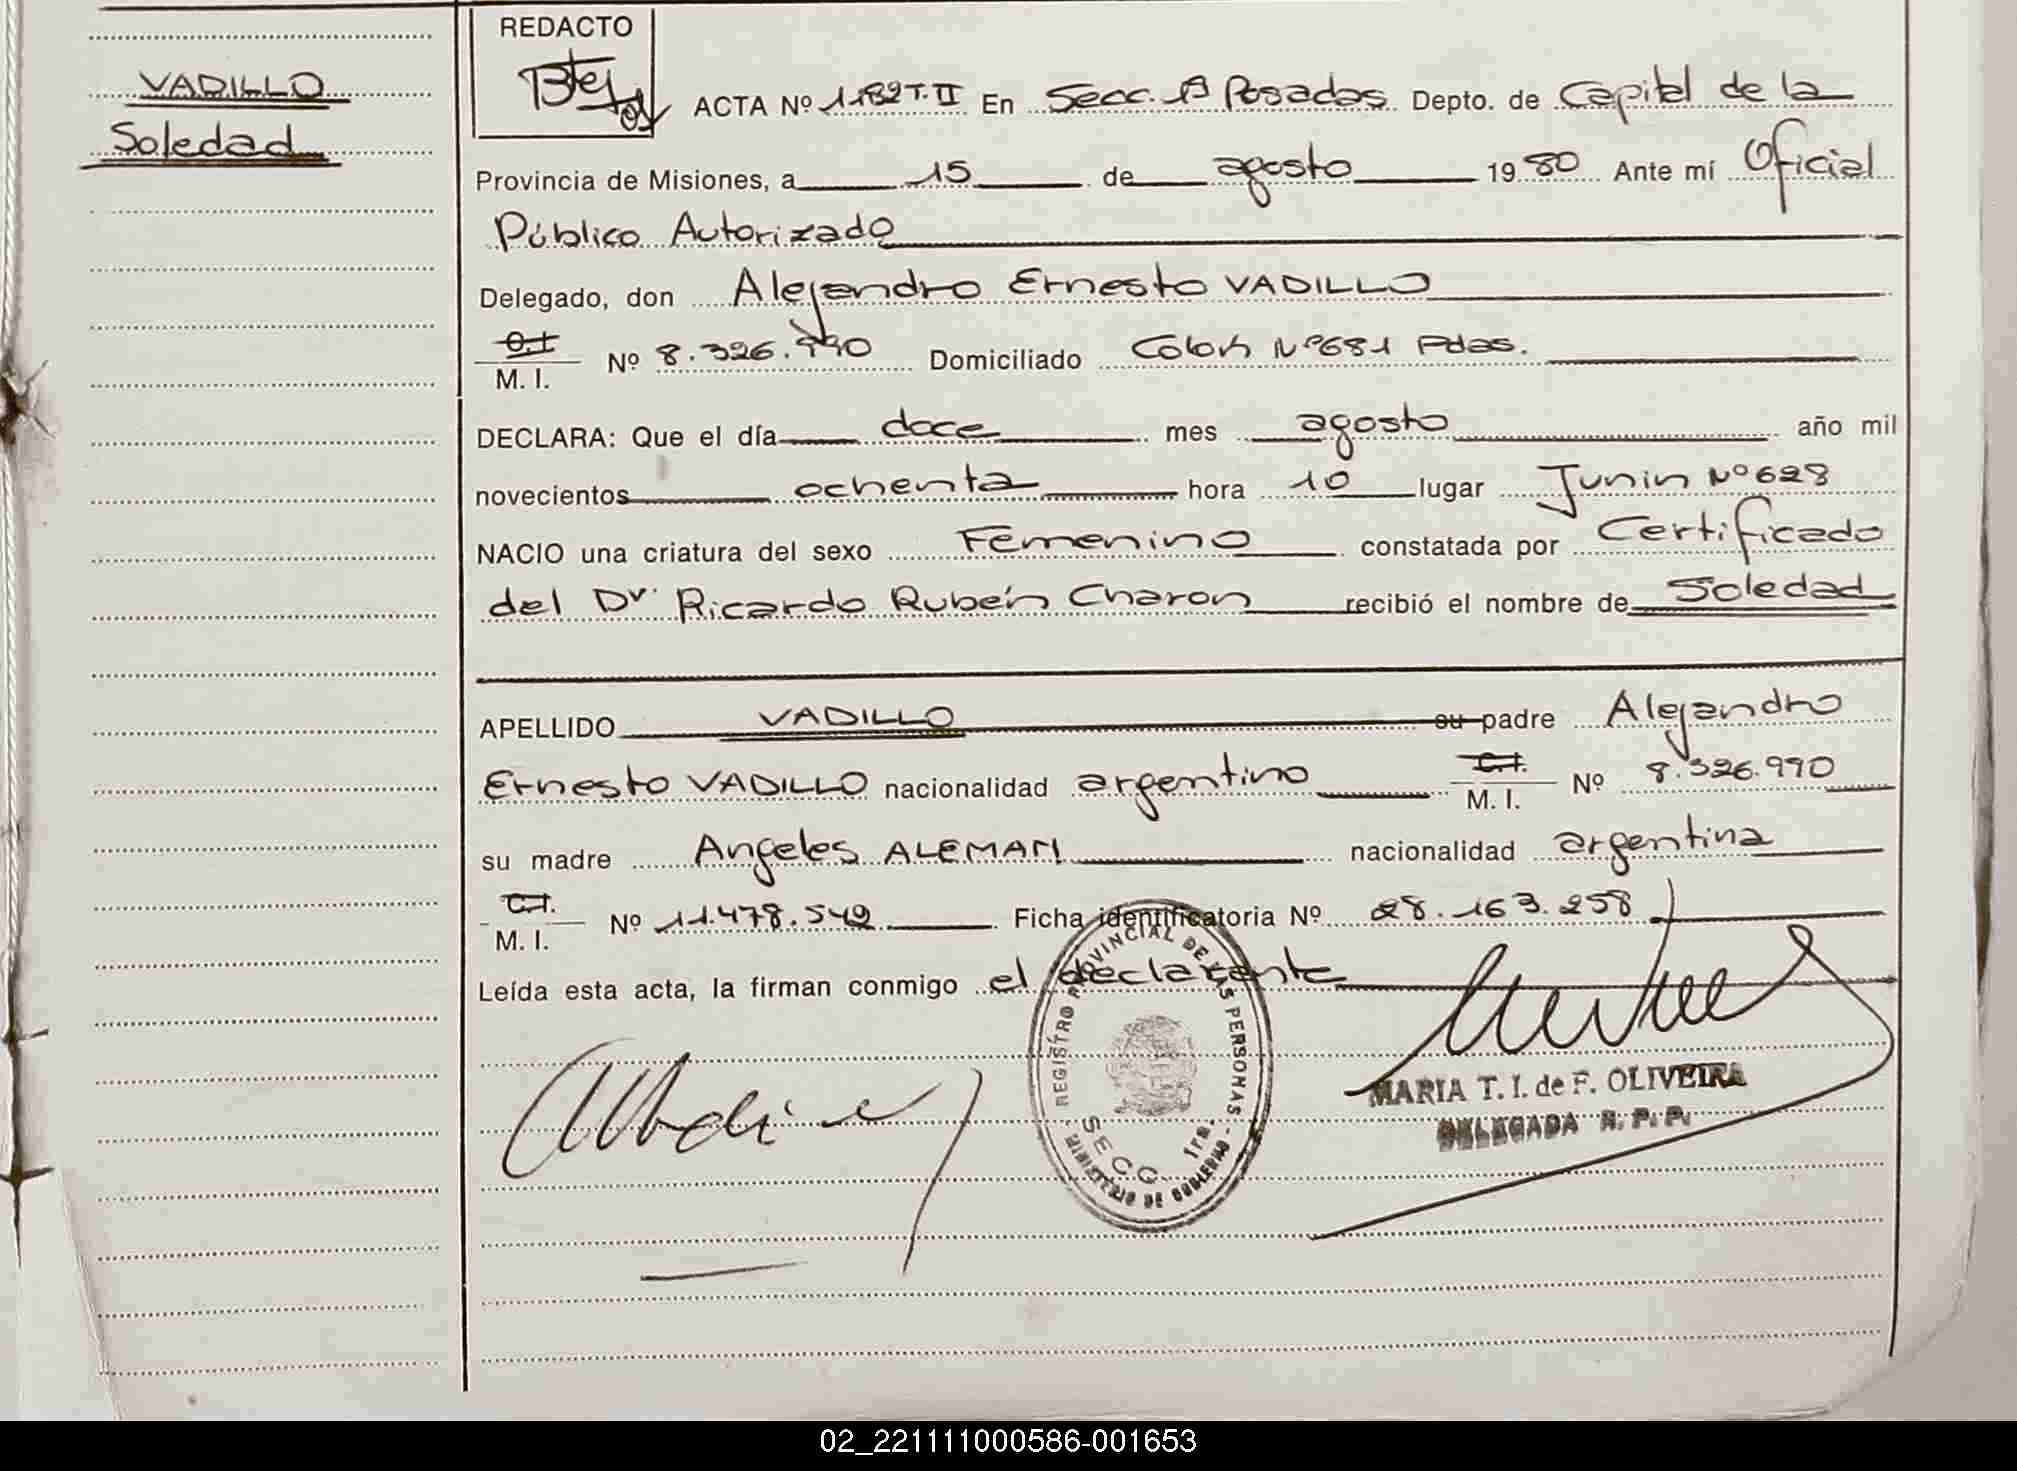 REDACTO
VADILLO
Soledad
ACTA Nº 1182 T. II En Secc. 1ª Posadas Depto. de Capital de la
Provincia de Misiones, a 15 de agosto 1980 Ante mí Oficial
Público Autorizado
Delegado, don Alejandro Ernesto VADILLO
C.I.
M. I. Nº 8.326.990 Domiciliado Colón Nº 681 Pdas.
DECLARA: Que el día doce mes agosto año mil
novecientos ochenta hora 10 lugar Junin Nº 628
NACIO una criatura del sexo Femenino constatada por Certificado
del Dr. Ricardo Rubén Charon recibió el nombre de Soledad
APELLIDO VADILLO su padre Alejandro
Ernesto VADILLO nacionalidad argentino C.I. M. I. Nº 8.326.990
su madre Angeles ALEMAN nacionalidad argentina
C.I.
M. I. Nº 11.478.542 Ficha identificatoria Nº 28.163.258
Leída esta acta, la firman conmigo el declarante
REGISTRO PROVINCIAL DE LAS PERSONAS
SECC. 1ra.
MINISTERIO DE GOBIERNO
MARIA T. I. de F. OLIVEIRA
DELEGADA R. P. P.
02_221111000586-001653